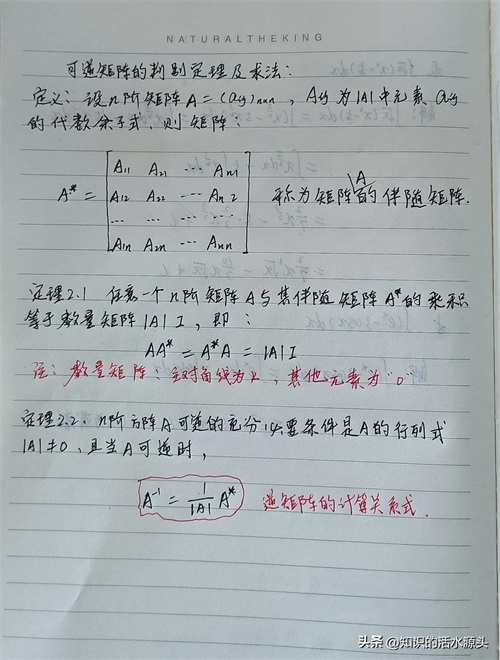 NATURALTHEKING
可逆矩阵的判别定理及求法:
定义: 设n阶矩阵A=(aij)n×n, Aij为|A|中元素aij
的代数余子式,则矩阵:
A* = [A11 A21 … An1
A12 A22 … An2
… … … …
A1n A2n … Ann] 称为矩阵A的伴随矩阵.
定理2.1 任意一个n阶矩阵A与其伴随矩阵A*的乘积
等于数量矩阵|A|I, 即:
AA* = A*A = |A|I
注: 数量矩阵: 主对角线为k, 其他元素为"0"
定理2.2: n阶方阵A可逆的充分必要条件是A的行列式
|A|≠0, 且当A可逆时,
A⁻¹ = 1/|A| A* 逆矩阵的计算关系式.
头条 @知识的活水源头